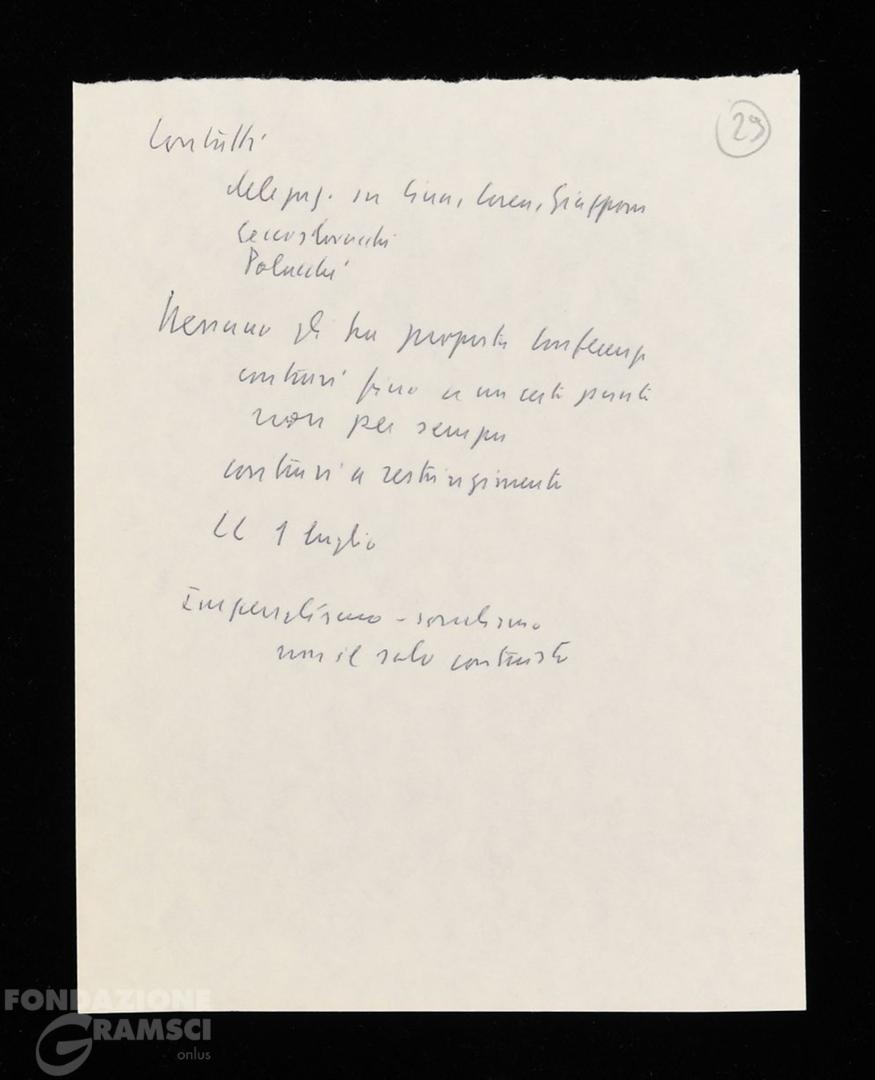 29
Contatti
deleg. in Cina, Corea, Giappone
Cecoslovacchi
Polacchi
Nessuno gli ha proposto conferenza
contrari fino a un certo punto
non per sempre
contrari a restringimento
CC 1 luglio
Imperialismo - socialismo
non il solo contrasto
FONDAZIONE
GRAMSCI
onlus